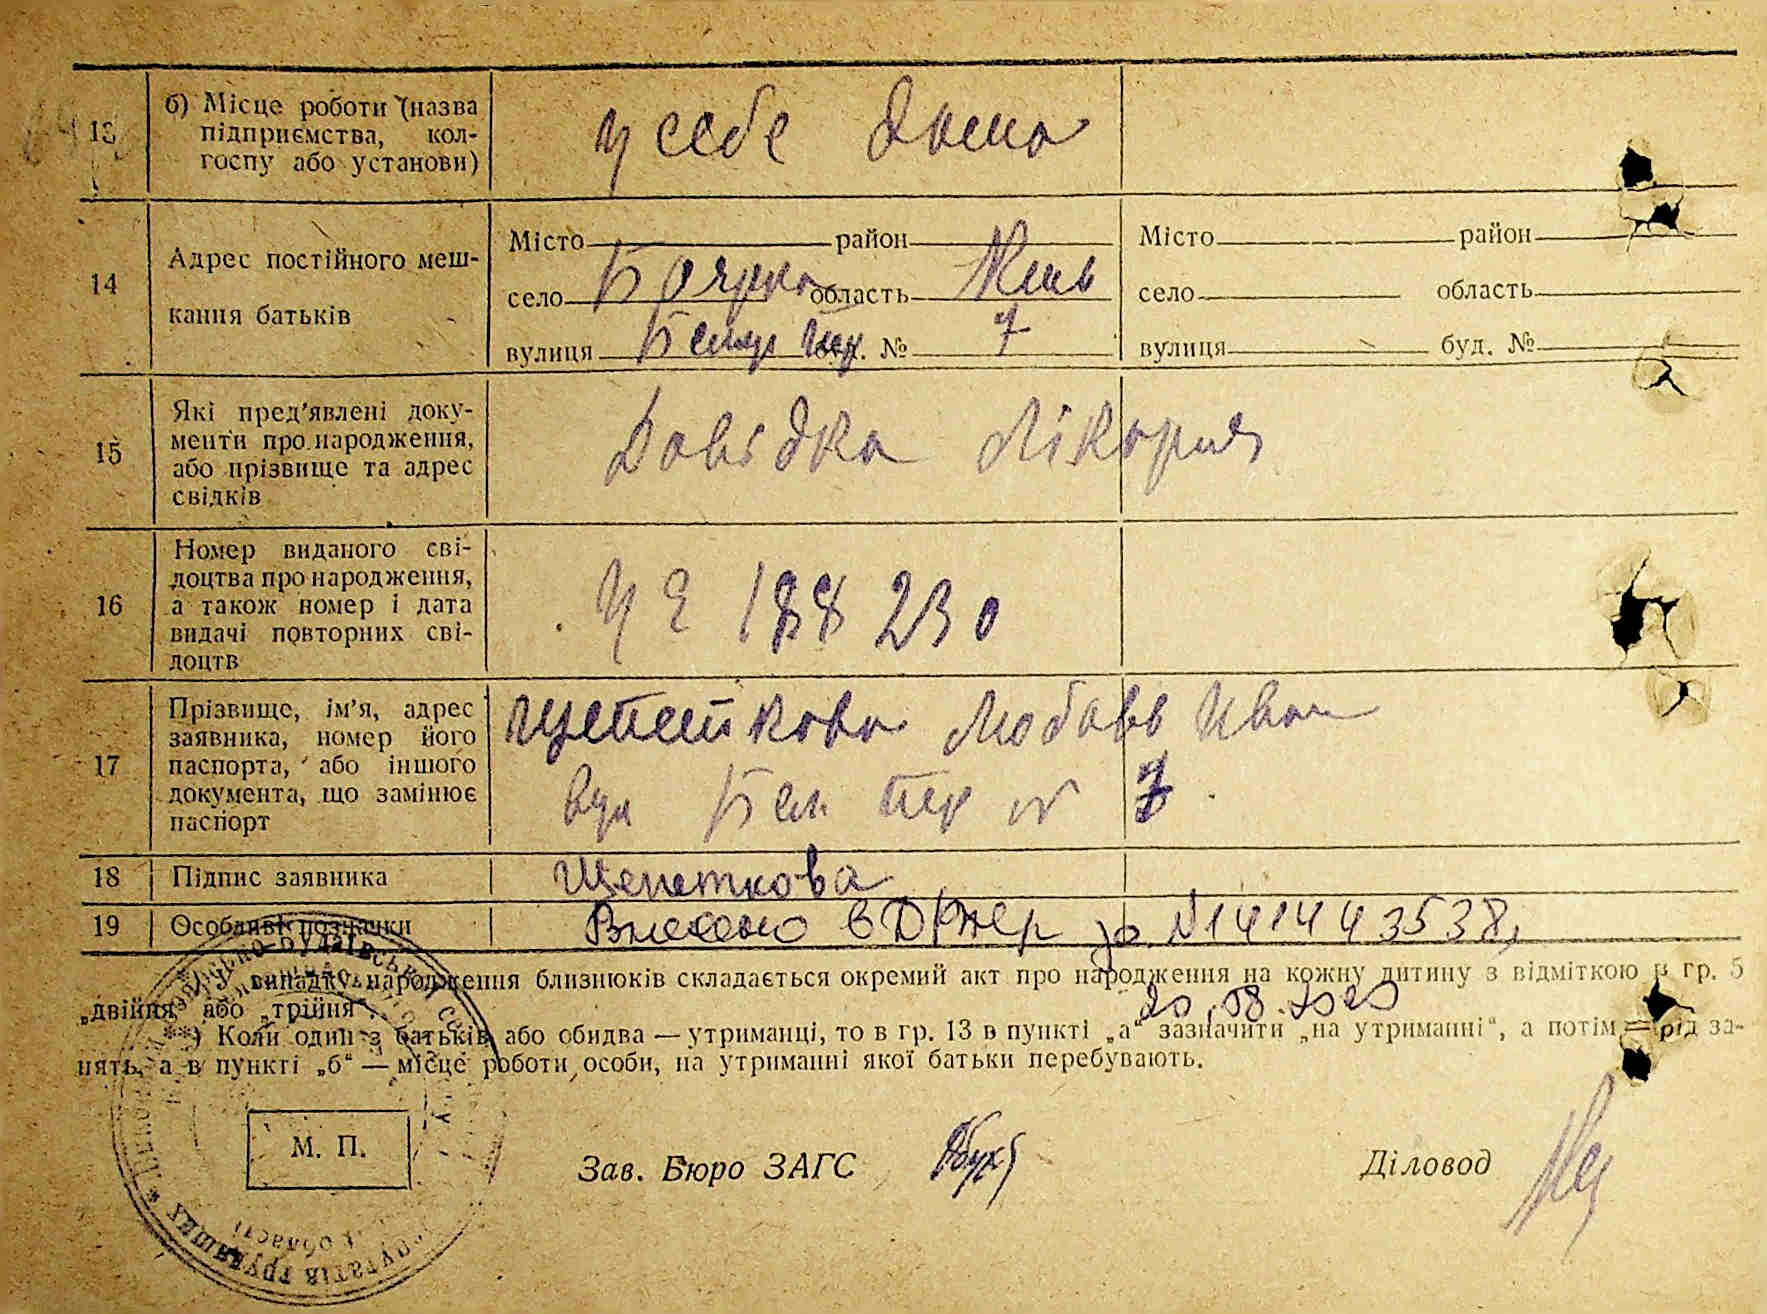 13
б) Місце роботи (назва
підприємства, кол-
госпу або установи)
у себе дома
14
Адрес постійного меш-
кання батьків
Місто район
село Боярка область Київ
вулиця буд. № 7
Місто район
село область
вулиця буд. №
15
Які пред'явлені доку-
менти про народження,
або прізвище та адрес
свідків
Довідка Лікарня
16
Номер виданого сві-
доцтва про народження,
а також номер і дата
видачі повторних сві-
доцтв
188230
17
Прізвище, ім'я, адрес
заявника, номер його
паспорта, або іншого
документа, що замінює
паспорт
Щепеткова Любовь Иван
вул Бел пер № 7
18
Підпис заявника
Щепеткова
19
Особливі позначки
Внесено в ДРАЦС за №1414443538,
20.08.2023
*) У випадку народження близнюків складається окремий акт про народження на кожну дитину з відміткою в гр. 5
„двійня“ або „трійня“.
**) Коли один з батьків або обидва — утриманці, то в гр. 13 в пункті „а“ зазначити „на утриманні“, а потім — рід за-
нять, а в пункті „б“ — місце роботи особи, на утриманні якої батьки перебувають.
М. П.
Зав. Бюро ЗАГС
Діловод
депутатів трудящих
області